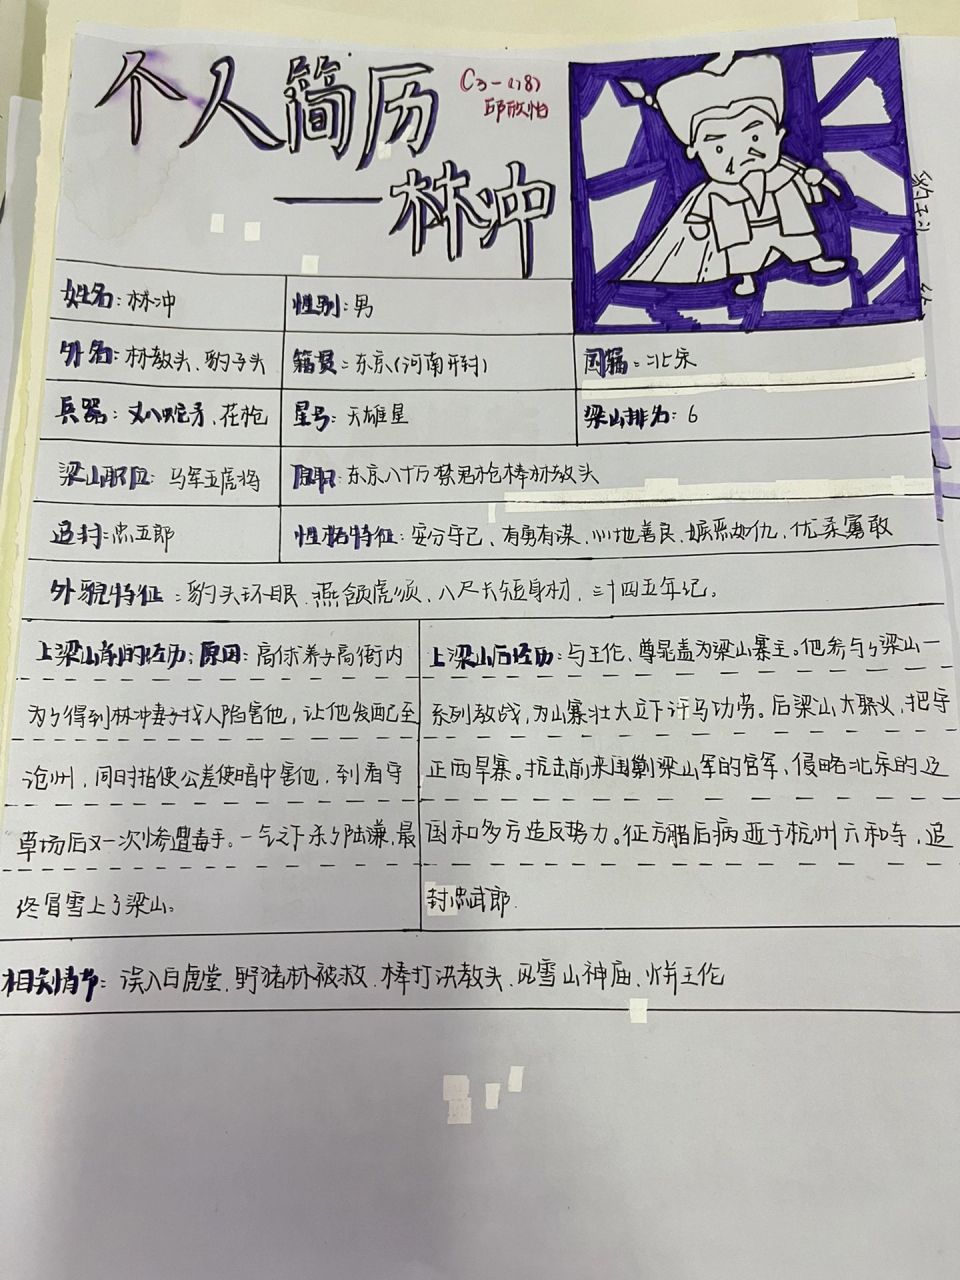 个人简历
C3-(18)
邱欣怡
——林冲
姓名：林冲 性别：男
外名：林教头、豹子头 籍贯：东京(河南开封) 国籍：北宋
兵器：丈八蛇矛、花枪 星号：天雄星 梁山排名：6
梁山职位：马军五虎将 原职：东京八十万禁军枪棒教头
追封：忠五郎 性格特征：安分守己、有勇有谋、心地善良、嫉恶如仇、优柔勇敢
外貌特征：豹头环眼、燕颔虎须、八尺长短身材、三十四五年纪。
上梁山前的经历；原因：高俅养子高衙内
为了得到林冲妻子找人陷害他，让他发配至
沧州，同时指使公差使暗中害他，到看守
草场后又一次惨遭毒手。一气之下杀了陆谦，最
终冒雪上了梁山。
上梁山后经历：与王伦、尊晁盖为梁山寨主。他参与了梁山一
系列敌战，为山寨壮大立下汗马功劳。后梁山大聚义，把守
正西旱寨。抗击前来围剿梁山军的官军，侵略北宋的辽
国和多方造反势力。征方腊后病逝于杭州六和寺，追
封忠武郎.
相关情节：误入白虎堂、野猪林被救、棒打洪教头、风雪山神庙、火并王伦
豹子头